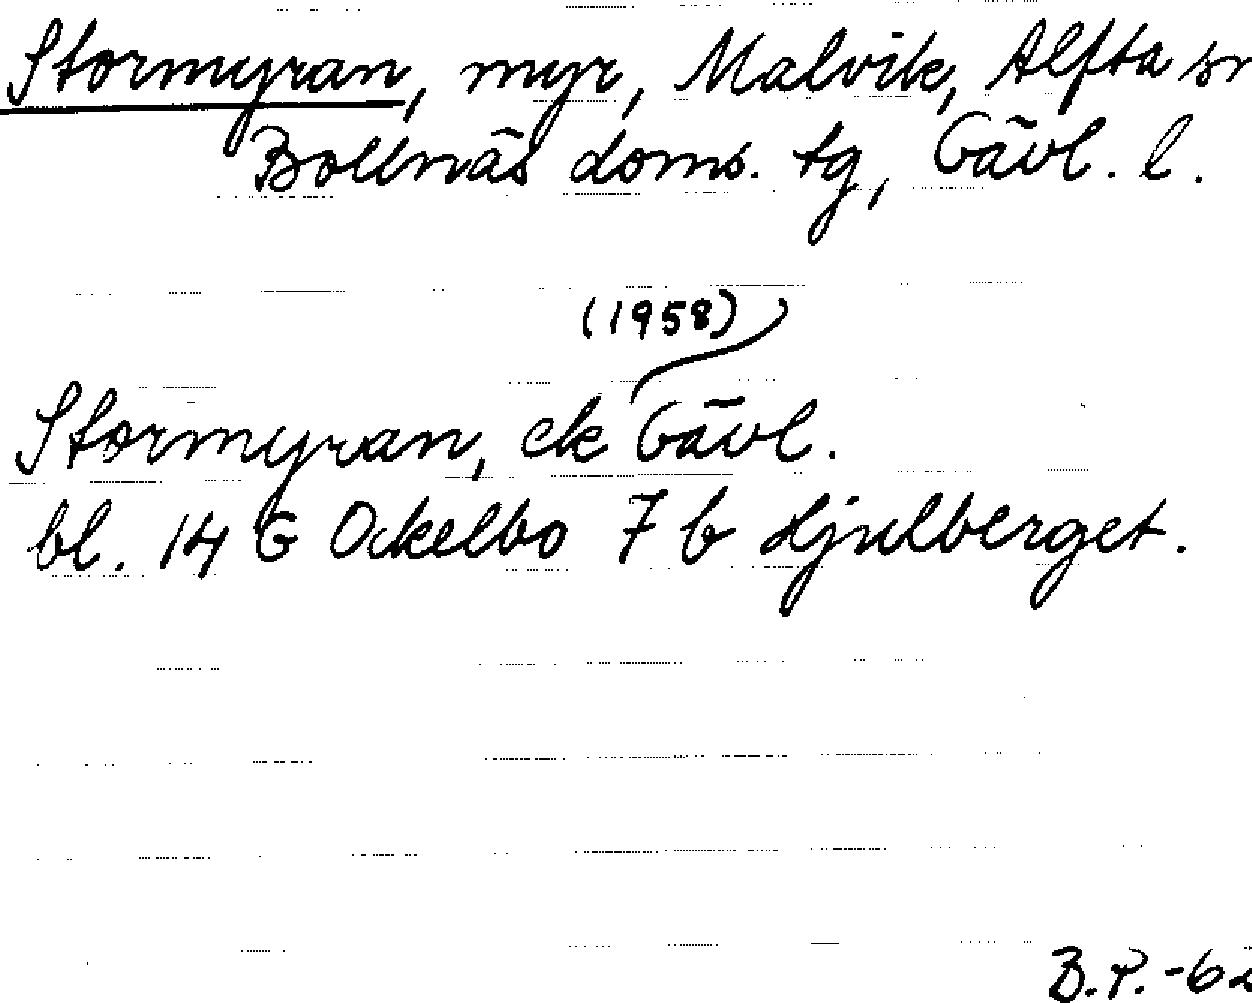 Stormyran, myr, Malvik, Alfta sn
Bollnäs doms. tg, Gävl. l.
(1958)
Stormyran, ek Gävl.
bl. 14 G Ockelbo 7 b Djulberget.
B.P. -62